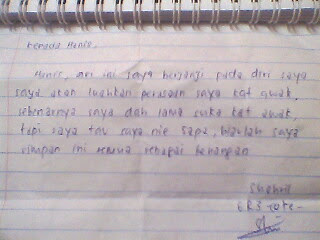 Kepada Hanis,
Hanis, ari ini saya berjanji pada diri saya
saya akan luahkan perasaan saya kat awak,
sebenarnya saya dah lama suka kat awak,
tapi saya tau saya nie sapa, biarlah saya
simpan ini semua sebagai kenangan